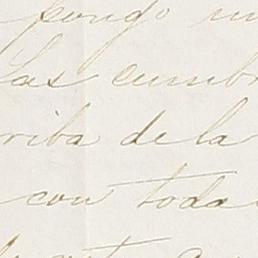 pongo un
Las cumbr
rriba de la
con toda